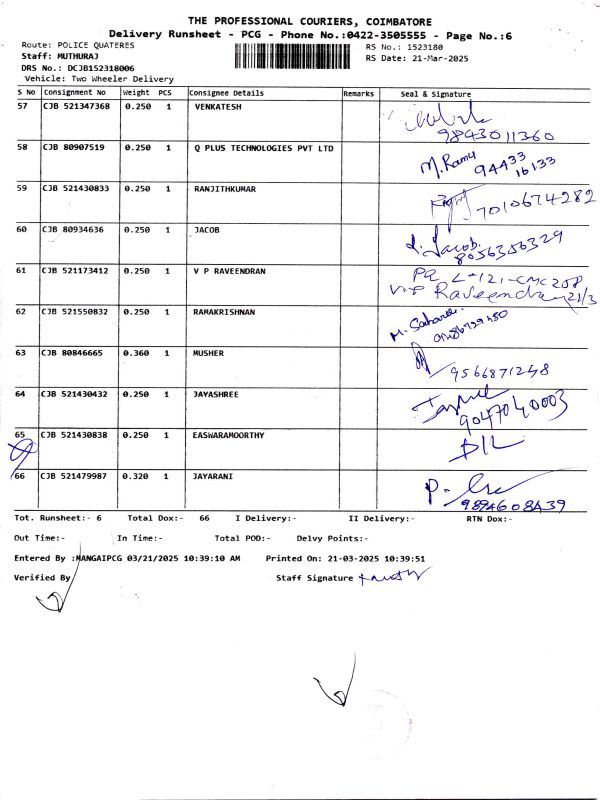 THE PROFESSIONAL COURIERS, COIMBATORE
Delivery Runsheet - PCG - Phone No.:0422-3505555 - Page No.:6
Route: POLICE QUATERES RS No.: 1523180
Staff: MUTHURAJ RS Date: 21-Mar-2025
DRS No.: DCJB152318006
Vehicle: Two Wheeler Delivery
S No Consignment No Weight PCS Consignee Details Remarks Seal & Signature
57 CJB 521347368 0.250 1 VENKATESH
9843011360
58 CJB 80907519 0.250 1 Q PLUS TECHNOLOGIES PVT LTD M. Ramu
94433
16133
59 CJB 521430833 0.250 1 RANJITHKUMAR
7010674282
60 CJB 80934636 0.250 1 JACOB Jacob.
8056356329
61 CJB 521173412 0.250 1 V P RAVEENDRAN
V.P Raveendran 21/3
62 CJB 521550832 0.250 1 RAMAKRISHNAN
63 CJB 80846665 0.360 1 MUSHER
9566871248
64 CJB 521430432 0.250 1 JAYASHREE
9047040003
65 CJB 521430838 0.250 1 EASWARAMOORTHY D/L
66 CJB 521479987 0.320 1 JAYARANI P.
9894608439
Tot. Runsheet:- 6 Total Dox:- 66 I Delivery:- II Delivery:- RTN Dox:-
Out Time:- In Time:- Total POD:- Delvy Points:-
Entered By :MANGAIPCG 03/21/2025 10:39:10 AM Printed On: 21-03-2025 10:39:51
Verified By Staff Signature